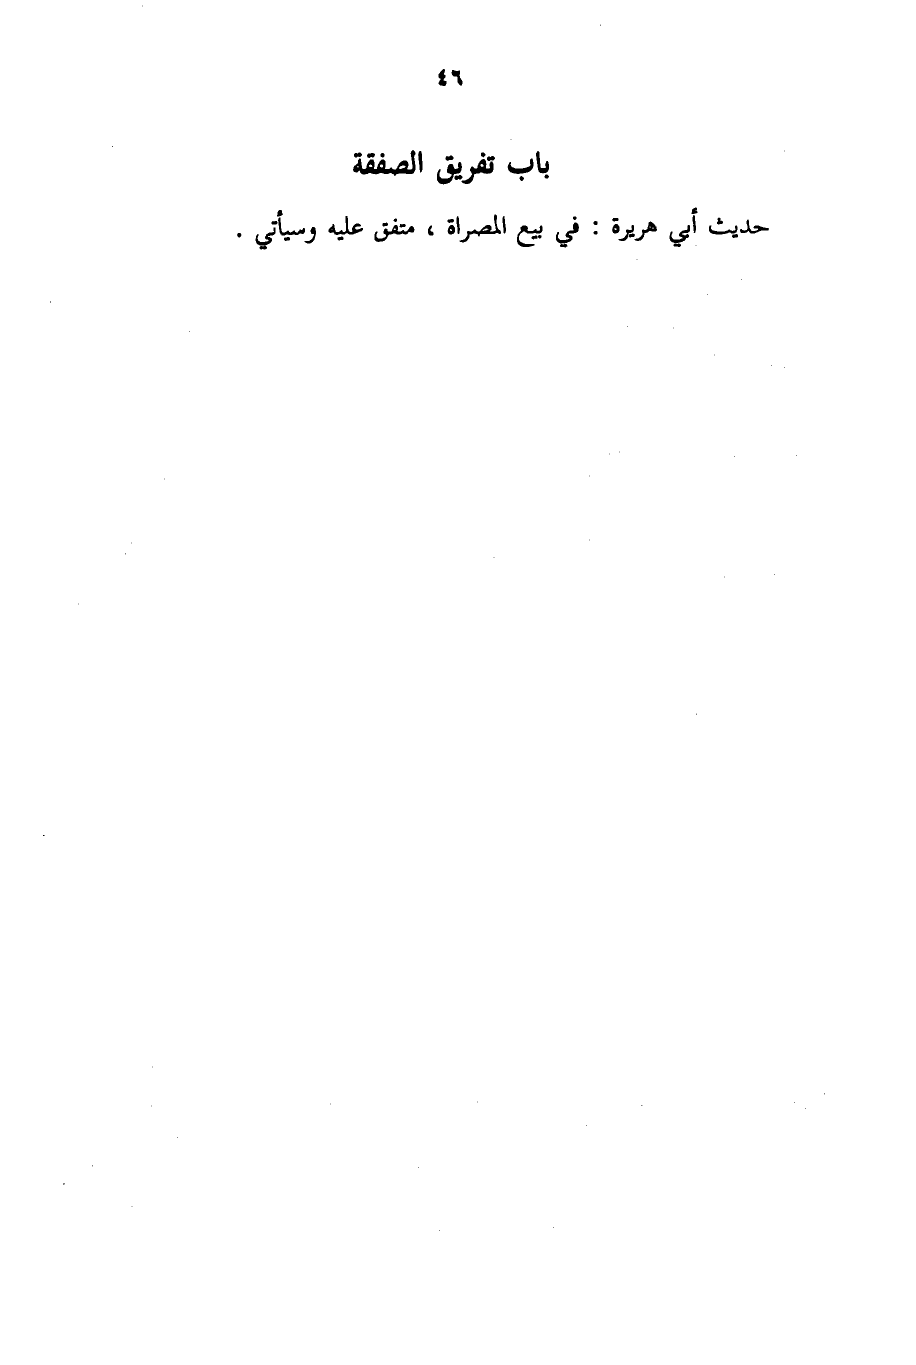 ٤٦
باب تفريق الصفقة
حديث أبي هريرة : في بيع المصراة ، متفق عليه وسيأتي .